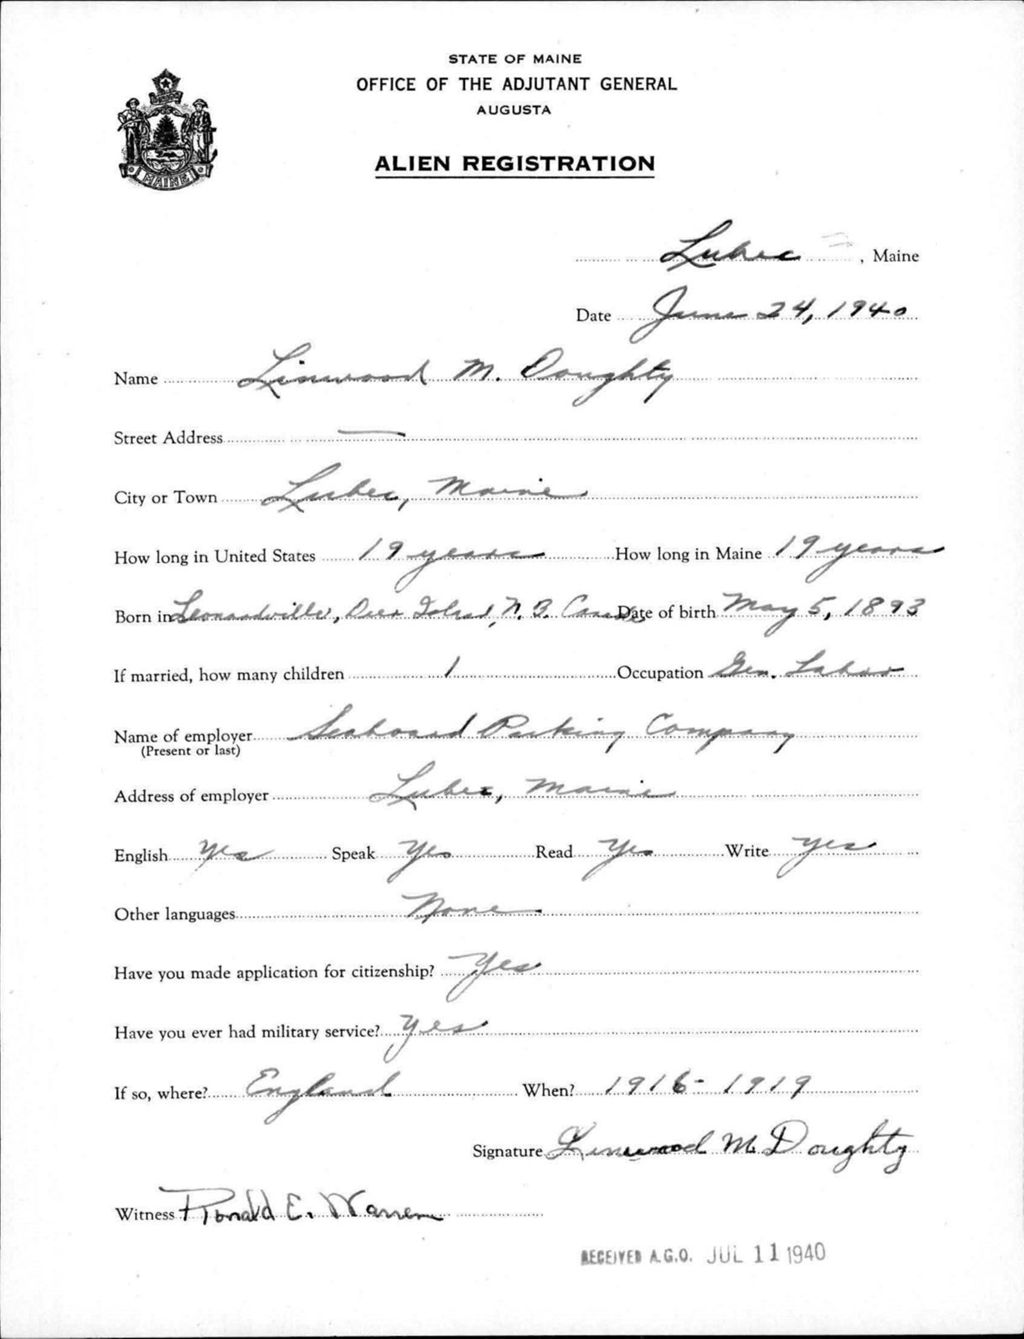 STATE OF MAINE
OFFICE OF THE ADJUTANT GENERAL
AUGUSTA
ALIEN REGISTRATION
MAINE
Lubec, Maine
Date June 24, 1940
Name Linwood M. Doughty
Street Address —
City or Town Lubec, Maine
How long in United States 19 years How long in Maine 19 years
Born in Leonardville, Deer Island, N. B. Canada Date of birth May 5, 1893
If married, how many children 1 Occupation Gen. Labor
Name of employer Seaboard Packing Company
(Present or last)
Address of employer Lubec, Maine
English Yes Speak Yes Read Yes Write Yes
Other languages None
Have you made application for citizenship? Yes
Have you ever had military service? Yes
If so, where? England When? 1916-1919
Signature Linwood M Doughty
Witness Ronald E. Warren
RECEIVED A.G.O. JUL 11 1940